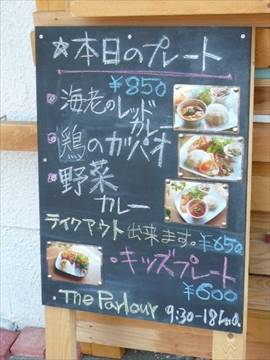 ☆本日のプレート
¥850
海老のレッド
カレー
鶏のガパオ
野菜
カレー
テイクアウト出来ます。¥650
・キッズプレート
¥600
The Parlour 9:30-18